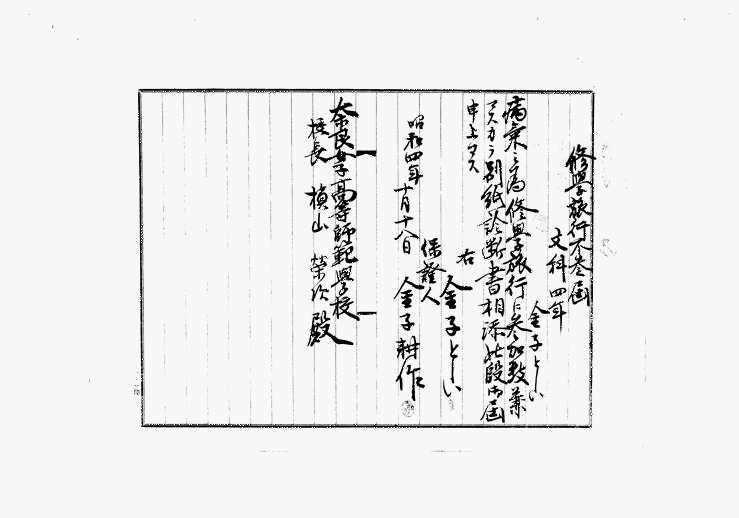 修學旅行不参届
文科四年
金子としい
病気ノ為修學旅行ニ参加致兼
マスカラ別紙診断書相添此段御届
申上マス
右
金子としい
保證人
金子耕作
昭和四年十月十八日
奈良女子高等師範學校
校長 槙山 榮次 殿